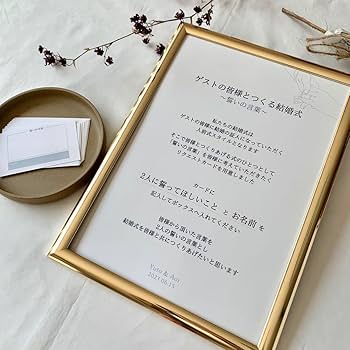 ゲストの皆様とつくる結婚式
〜誓いの言葉〜
私たちの結婚式は
ゲストの皆様に結婚の証人になっていただく
人前式スタイルとなります
そこで皆様とつくりあげる式のひとつとして
「誓いの言葉」を皆様に考えていただきたく
リクエストカードを用意しました
カードに
2人に誓ってほしいこと と お名前 を
記入してボックスへ入れてください
皆様から頂いた言葉を
2人の誓いの言葉とし
結婚式を皆様と共につくりあげたいと思います
Yuto & Aoi